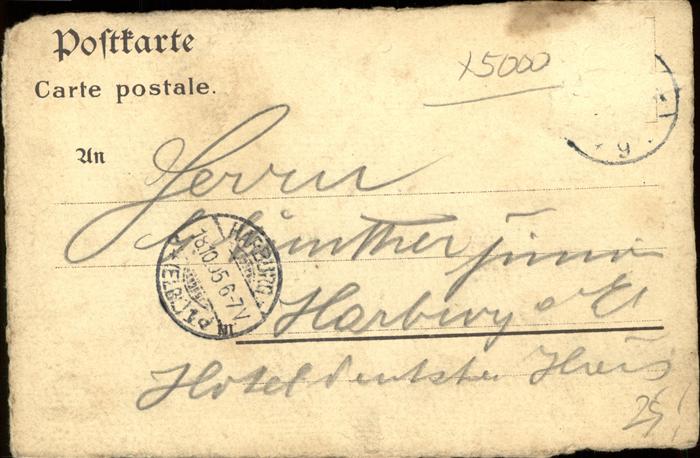 Postkarte
Carte postale.
x5000
An
Herrn
Günther junior
HARBURG (ELBE)
18.10.05 6-7V
Harburg a. El
Hotel deutsches Haus
25